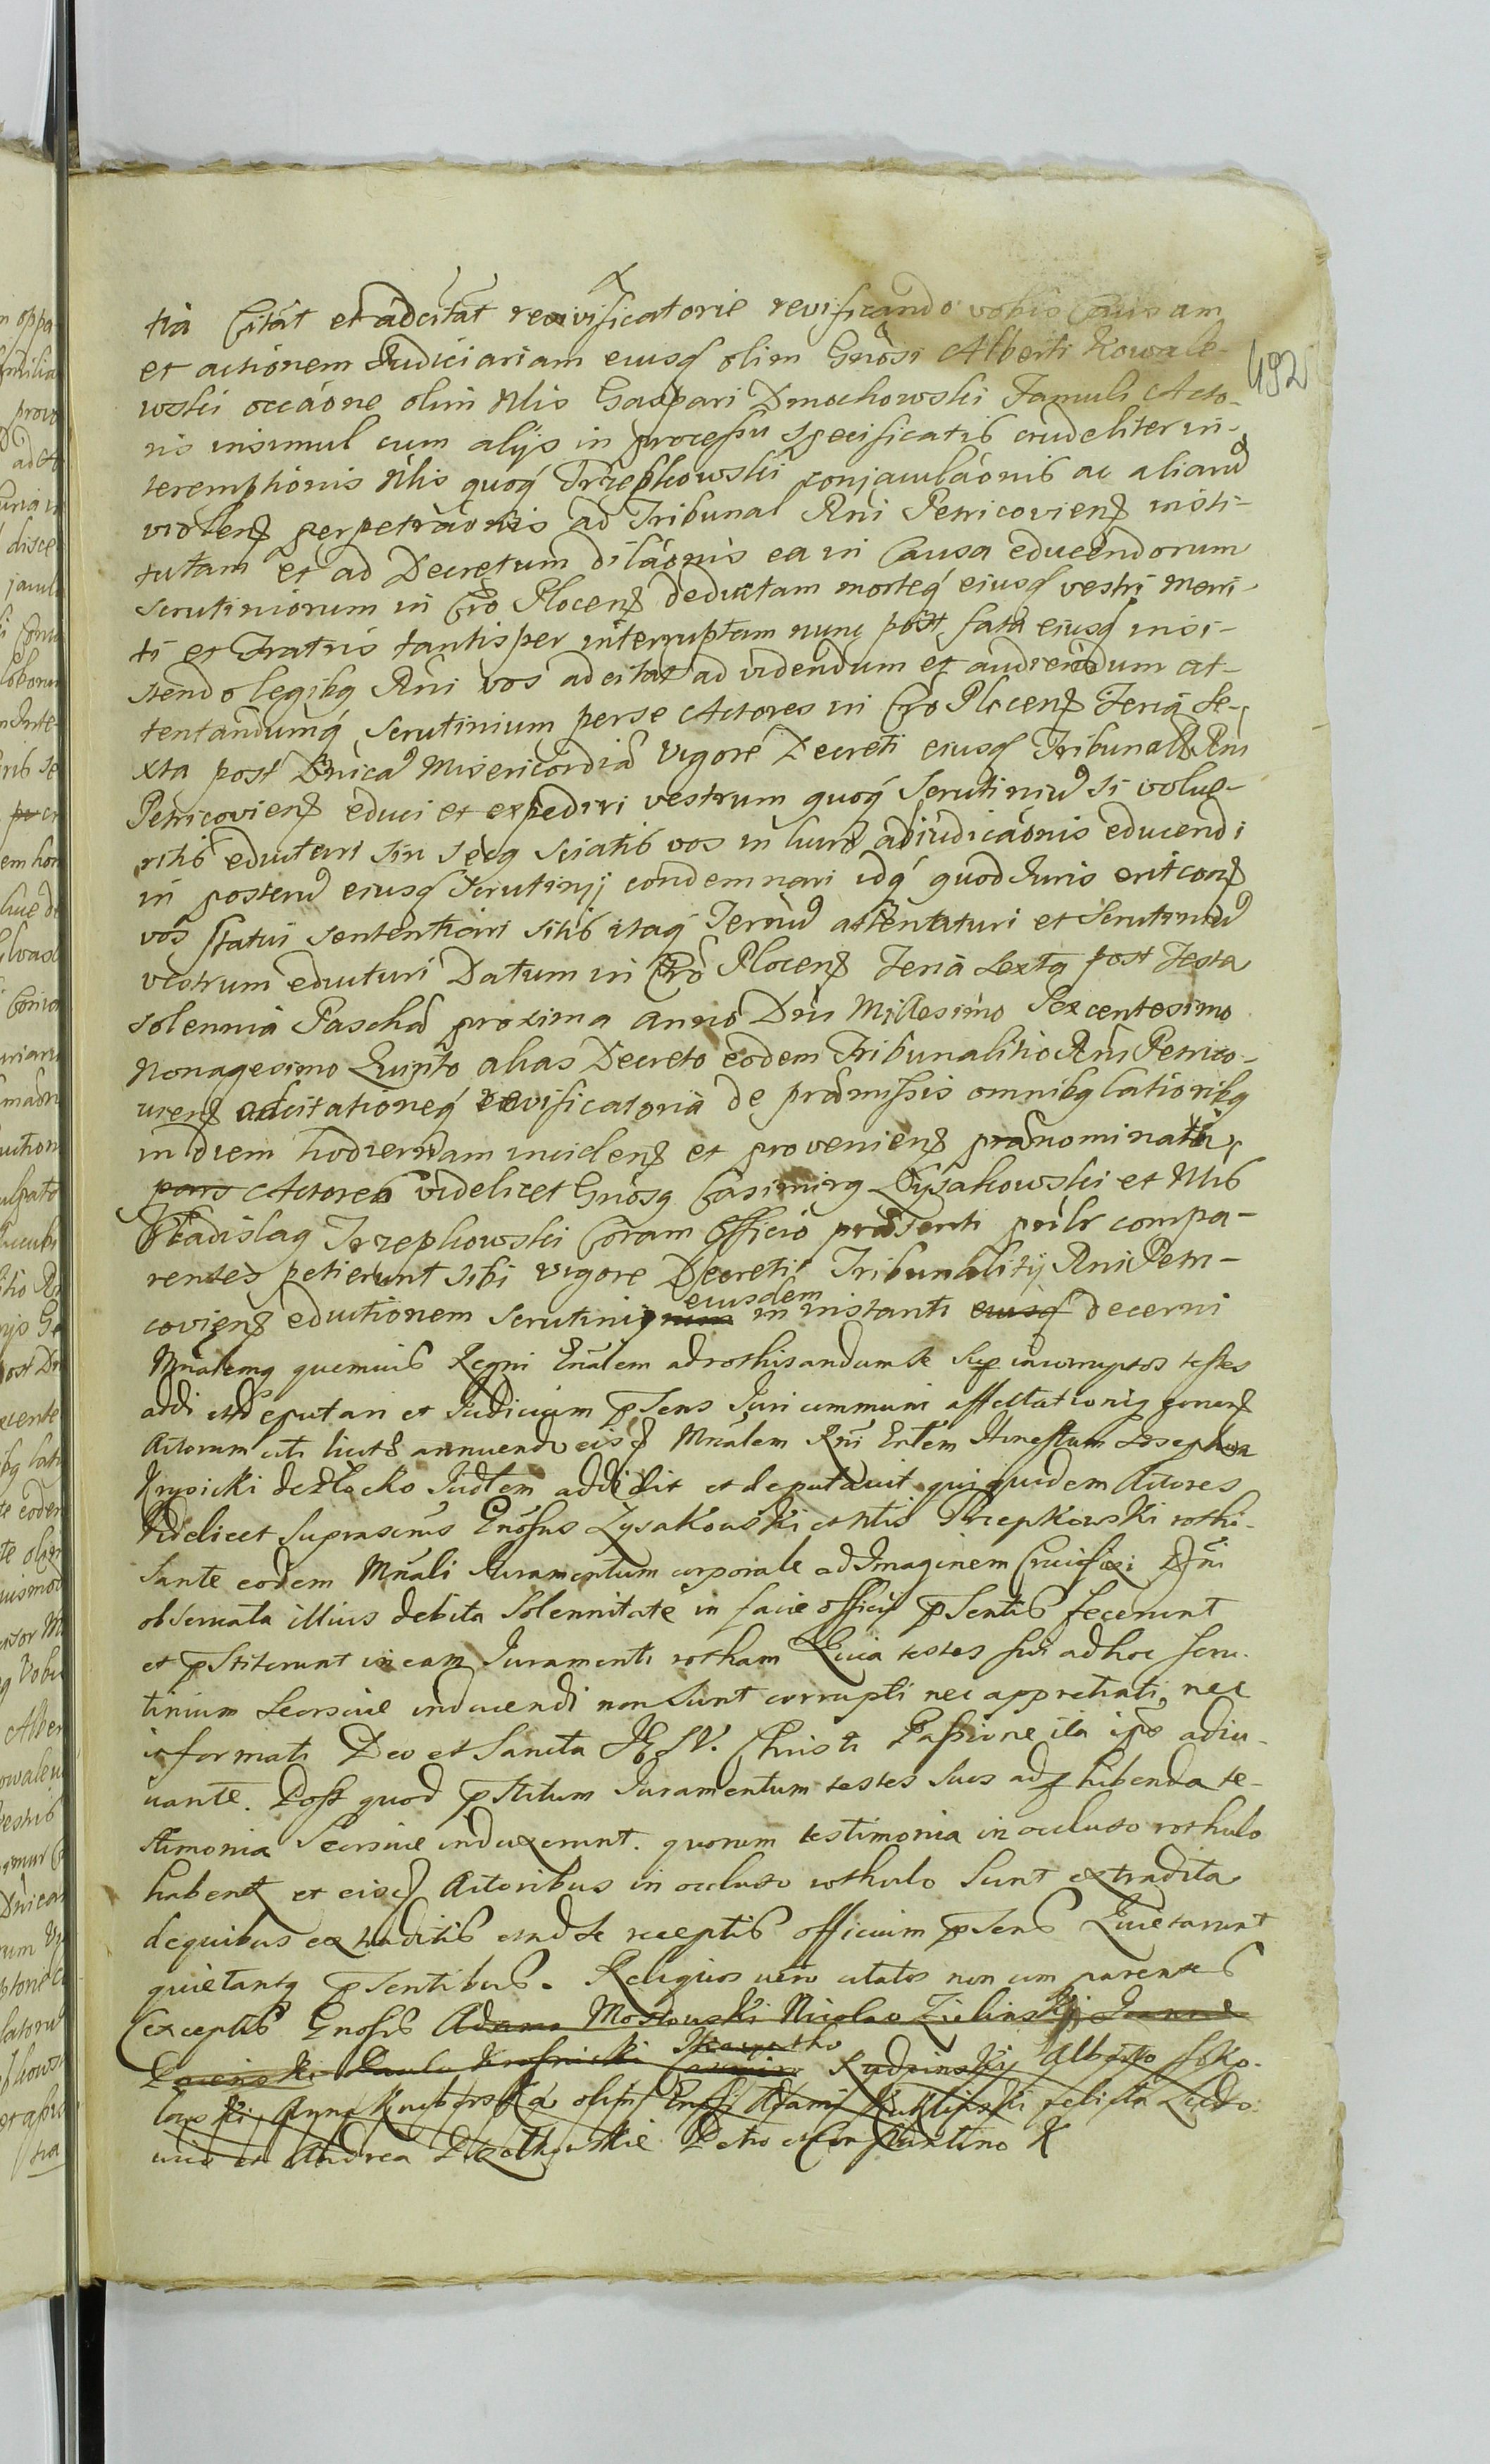 tia Citat et adcitat revivificatorie revificando vobis Causam
et actionem Judiciariam eiusq olim Gnosi Alberti Kowale-
492
wski occaone olim Nlis Gaspari Dmochowski Famuli Acto-
ris insimul cum alijs in processu specificatis crudeliter in-
teremptionis Nlis quoq Trzepkowski conjaculaonis ac aliaru
violenz perpetraonis ad Tribunal Rni Petricovienz insti-
tutam et ad Decretum dilaonis ea in Causa educendorum
Scrutiniorum in Cro Plocenz deductam morteq eiusq vestri mari-
ti et Fratris tantisper interruptam nunc post fata eiusq insi-
stendo legibq Rni vos adcitat ad videndum et audiendum at-
tentandumq Scrutinium per se Actores in Cro Plocenz Feria Se-
xta post Dnica Misericordia vigore Decreti eiusq Tribunalis Rni
Petricovienz educi et expediri vestrum quoq Scrutiniu si volue-
ritis eductari sin secq sciatis vos in lucro adiudicaonis educendi
in posteru eiusq Scrutinij condemnari idq quod Juris erit conz
vos statui sententiari sitis itaq Terminu attentaturi et Scrutiniu
vestrum educturi Datum in Cro Plocenz Feria Sexta post Festa
solennia Pascha proxima Anno Dni Millesimo Sexcentesimo
Nonagesimo Quinto alias Decreto eodem Tribunalitio Rni Petrico-
vienz adcitationeq revificatoria de praemissis omnibq latioribq
in diem hodiernam incidenz et provenienz praenominati
pars Actores videlicet Gnosq Casimirq Lysakowski et Nlis
Vladislaq Trzepkowski Coram Officio praesenti prsilr compa-
rentes petierunt sibi vigore Decreti Tribunalitij Rni Petri-
eiusdem
covienz eductionem Scrutinij in instanti eiusq decerni
Mnialemq quemvis Regni Gnalem ad rothisandum se sup incorruptos testes
addi et deputari et Judicium psens Juri communi affectationiq
Actorum uti licitae annuendo eisq Mnialem Rni Gnlem Honestum Josephum
Krysicki de Plocko Judlem addidit et deputavit qui quidem Actores
Videlicet Suprascrus Gnosus Lysakowski et Nlis Trzepkowski rothi-
sante eodem Mniali Juramentum corporale ad Imaginem Crucifixi Dni
observata illius debita Solennitate in facie officij psentis fecerunt
et pstiterunt in eam Juramenti rotham Quia testes sui ad hoc scru-
tinium Seorsive inducendi non sunt corrupti nec appretiati, nec
informati Deo et Sancta JESV. Christi Passione ita ipso adiu-
vante. Post quod pstitum Juramentum testes suos ad phibenda te-
stimonia Seorsive induxerunt. quorum testimonia in occluso rothulo
habentz et eisq Actoribus in occluso rothulo Sunt extradita
de quibus extraditis et ad se receptis officium psens Quietarunt
quietantq psentibus. Reliquos vero citatos non comparentes
Exceptis Gnosis Adamo Mostowski Nicolao Zielinski Joanne
Paulo Krosnicki Rudzinski Alberto Soko-
lowski, Anna olim Gnosi Adami felicta Ludo-
vico et Andrea Petro et Constantino